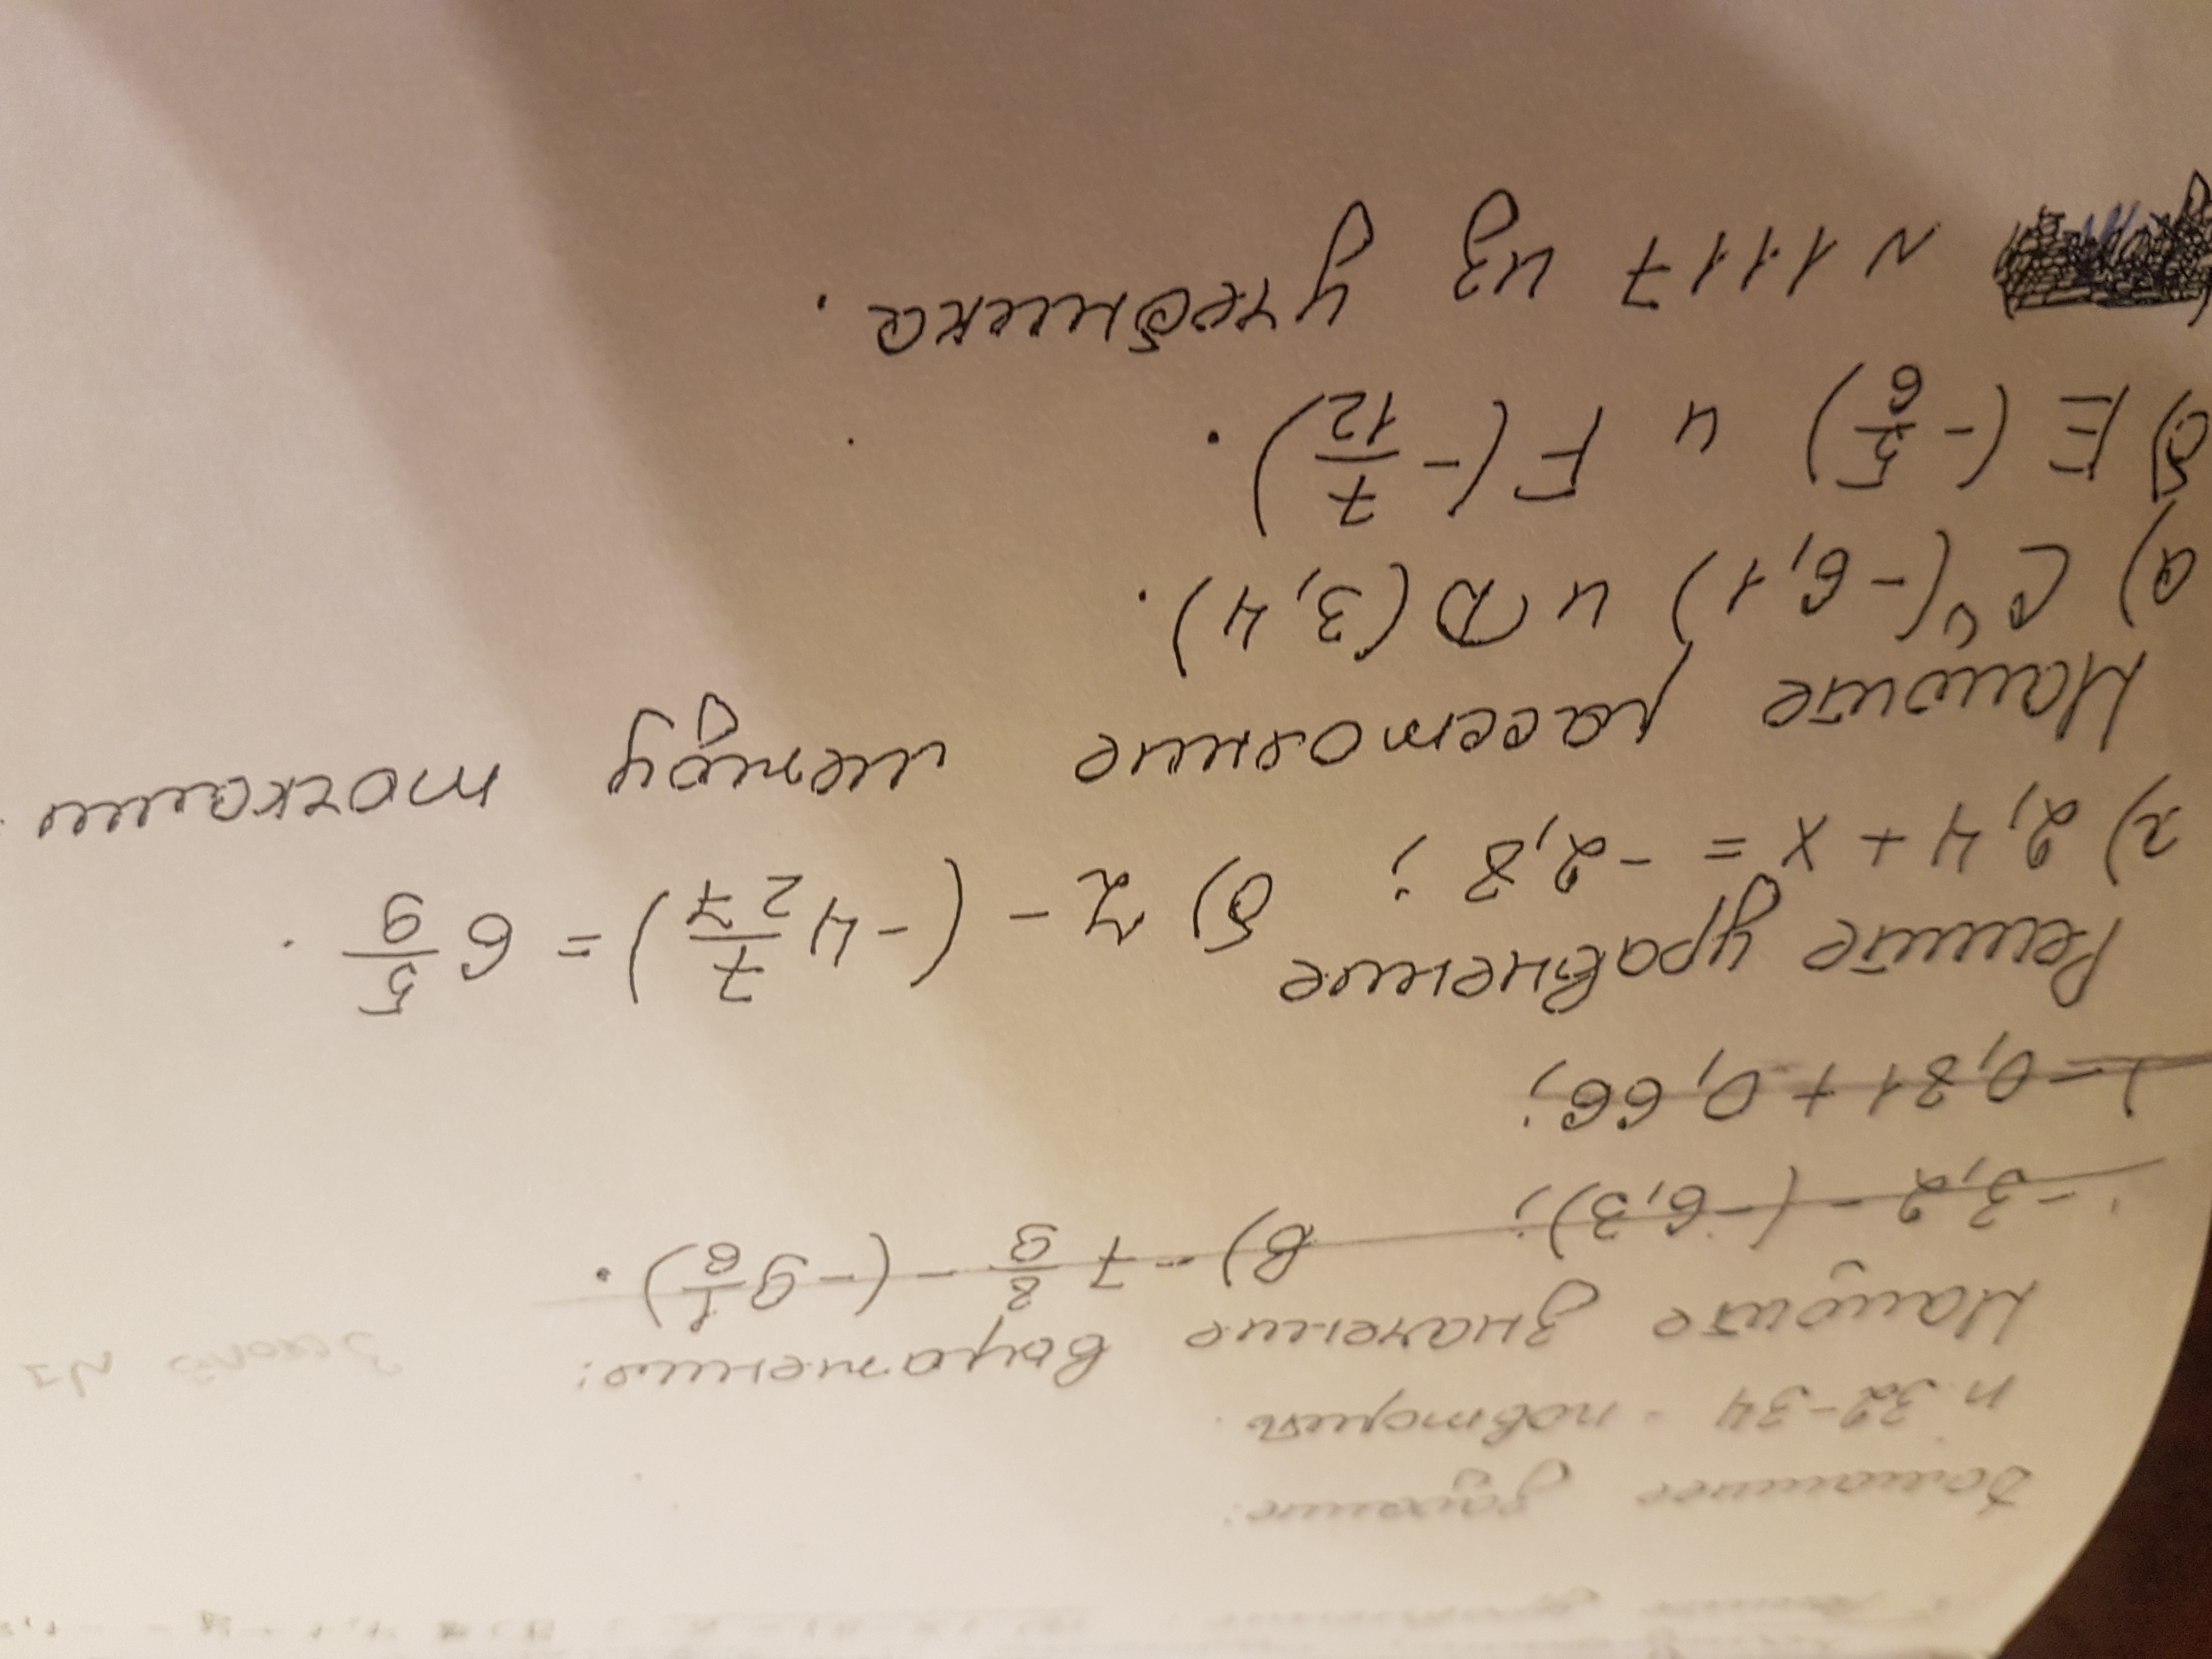 Домашнее задание:
п. 32-34 - повторить.
Найдите значение выражения:
-3,2 - (-6,3); в) -7 8/9 - (-9 1/6).
) -0,81 + 0,66;
Решите уравнение
а) 2,4 + x = -2,8; б) z - (-4 7/27) = 6 5/9.
Найдите расстояние между точками
а) C (-6,1) и D (3,4).
б) E (-5/6) и F (-7/12).
N 1117 из учебника.